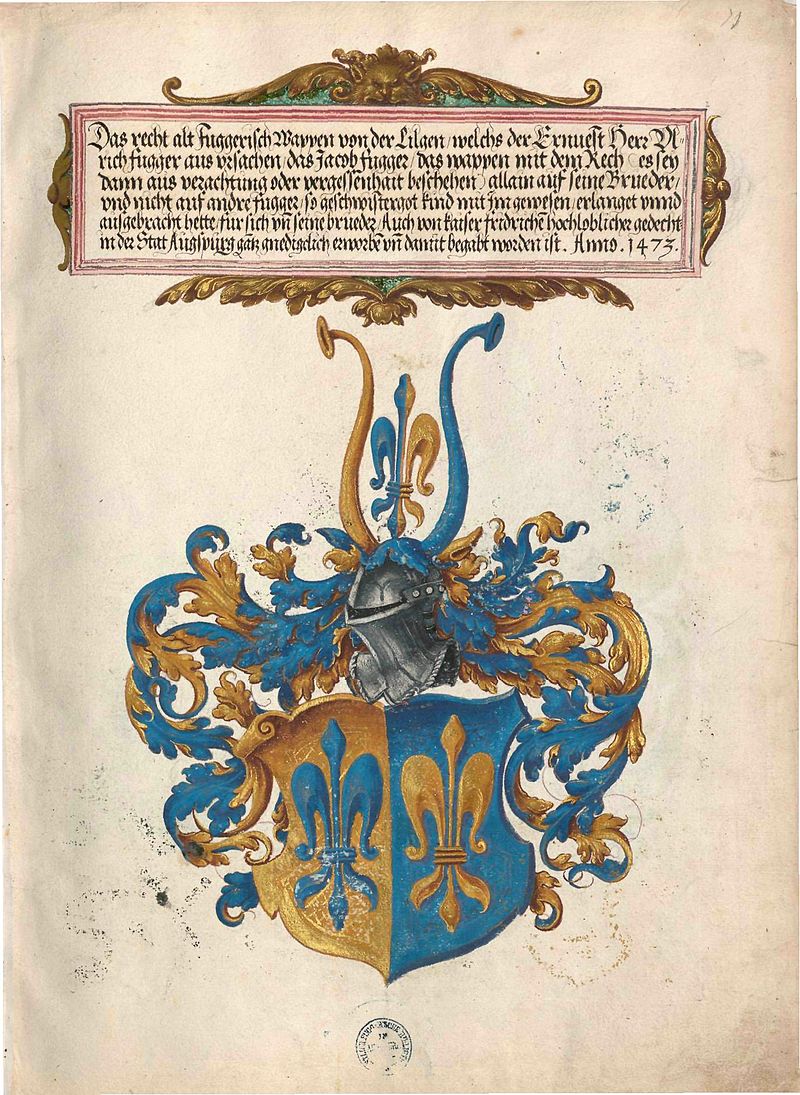 Das recht alt Fuggerisch Wappen von der Lilgen / welchs der Ernuest Herr Vl-
rich fugger aus vrsachen / das Jacob fugger / das wappen mit dem Rech (es sey
dann aus verachtung oder vergessenhait beschehen) allain auf seine Brueder /
vnd nicht auf andre fugger / so geschwistergot kind mit Jm gewesen / erlanget vnnd
ausgebracht hette / fur sich vñ seine brueder / Auch von kaiser fridrichen hochloblicher gedecht
in der Stat Augspurg gãtz gnedigclich erworbẽ vñ damit begabt worden ist. Anno. 1473.